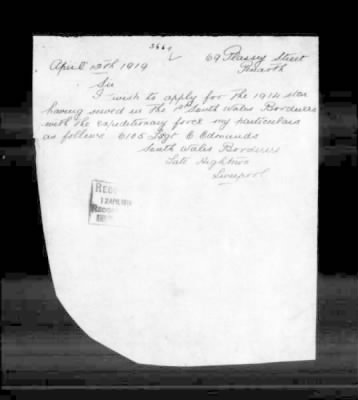 3660
69 Plassey Street
Penarth
April 10th 1919
Sir
I wish to apply for the 1914 star
having served in the 1st South Wales Borderers
with the expeditionary force my particulars
as follows 6105 Sgt C Edmunds
South Wales Borderers
Late Hightown
Liverpool
REC
12 APR 1919
RECOR